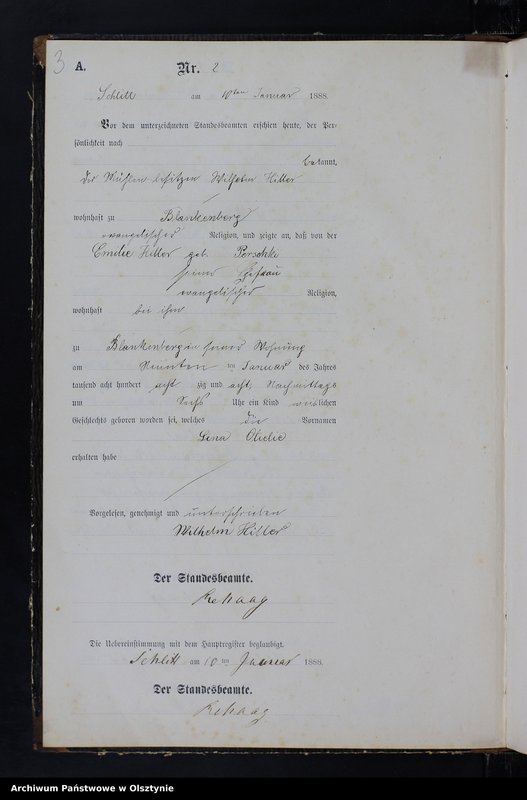 3 A. Nr. 2
Schlitt am 10ten Januar 1888.
Vor dem unterzeichneten Standesbeamten erschien heute, der Per-
sönlichkeit nach
bekannt,
der Mühlenbesitzer Wilhelm Hiller
wohnhaft zu Blankenberg
evangelischer Religion, und zeigte an, daß von der
Emilie Hiller geb. Porschke
seiner Ehefrau
evangelischer Religion,
wohnhaft bei ihm
zu Blankenberg in seiner Wohnung
am Neunten ten Januar des Jahres
tausend acht hundert acht zig und acht, Nachmittags
um Sechs Uhr ein Kind weiblichen
Geschlechts geboren worden sei, welches die Vornamen
Lina
erhalten habe
Vorgelesen, genehmigt und unterschrieben
Wilhelm Hiller
Der Standesbeamte.
Rehaag
Die Uebereinstimmung mit dem Hauptregister beglaubigt.
Schlitt am 10 ten Januar 1888.
Der Standesbeamte.
Rehaag
Archiwum Państwowe w Olsztynie